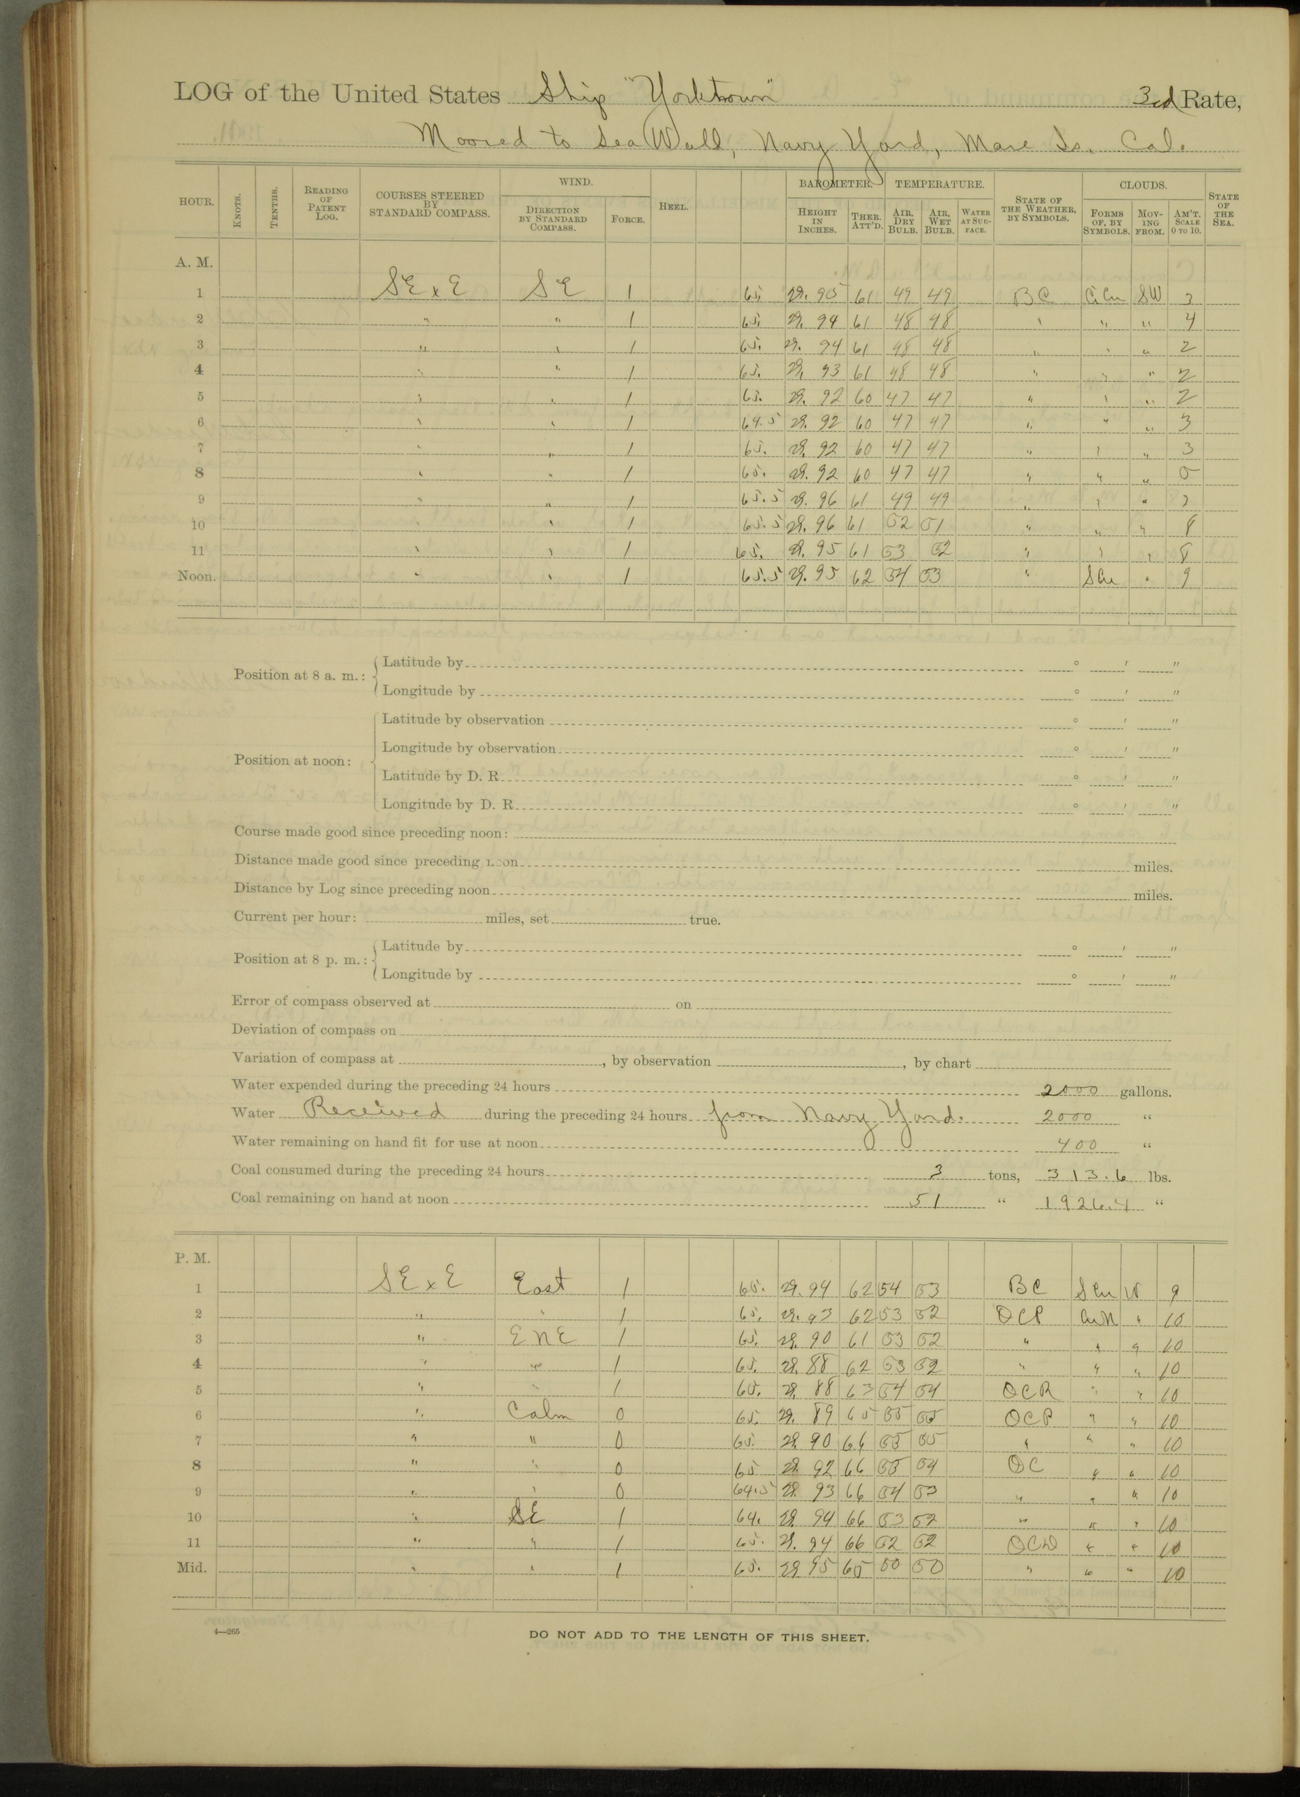 LOG of the United States Ship "Yorktown" 3rd Rate,
Moored to Sea Wall, Navy Yard, Mare Is. Cal.
HOUR. KNOTS. TENTHS. READING OF PATENT LOG. COURSES STEERED BY STANDARD COMPASS. WIND. DIRECTION BY STANDARD COMPASS. FORCE. HEEL. BAROMETER. HEIGHT IN INCHES. THER. ATT'D. TEMPERATURE. AIR, DRY BULB. AIR, WET BULB. WATER AT SURFACE. STATE OF THE WEATHER, BY SYMBOLS. CLOUDS. FORMS OF, BY SYMBOLS. MOVING FROM. AM'T. SCALE 0 TO 10. STATE OF THE SEA.
A. M.
1 SE x E SE 1 65. 29.95 61 49 49 BC CiCu SW 3
2 " " 1 65. 29.94 61 48 48 " " " 4
3 " " 1 65. 29.94 61 48 48 " " " 2
4 " " 1 65. 29.93 61 48 48 " " " 2
5 " " 1 65. 29.92 60 47 47 " " " 2
6 " " 1 64.5 29.92 60 47 47 " " " 3
7 " " 1 65. 29.92 60 47 47 " " " 3
8 " " 1 65. 29.92 60 47 47 " " " 5
9 " " 1 65.5 29.96 61 49 49 " " "
10 " " 1 65.5 29.96 61 52 51 " " " 8
11 " " 1 65. 29.95 61 53 52 " " " 8
Noon. " " 1 65.5 29.95 62 54 53 " SCu " 9
Position at 8 a. m.: Latitude by ° ′ ″
Longitude by ° ′ ″
Position at noon: Latitude by observation ° ′ ″
Longitude by observation ° ′ ″
Latitude by D. R. ° ′ ″
Longitude by D. R. ° ′ ″
Course made good since preceding noon:
Distance made good since preceding noon miles.
Distance by Log since preceding noon miles.
Current per hour: miles, set true.
Position at 8 p. m.: Latitude by ° ′ ″
Longitude by ° ′ ″
Error of compass observed at on
Deviation of compass on
Variation of compass at , by observation , by chart
Water expended during the preceding 24 hours 2000 gallons.
Water Received during the preceding 24 hours from Navy Yard. 2000 "
Water remaining on hand fit for use at noon 400 "
Coal consumed during the preceding 24 hours 3 tons, 313.6 lbs.
Coal remaining on hand at noon 51 " 1926.4 "
P. M.
1 SE x E East 1 65. 29.94 62 54 53 BC SCu W 9
2 " " 1 65. 29.93 62 53 52 OCP CuN " 10
3 " ENE 1 65. 29.90 61 53 52 " " " 10
4 " " 1 65. 29.88 62 53 52 " " " 10
5 " " 1 65. 29.88 63 54 54 OCR " " 10
6 " Calm 0 65. 29.89 65 55 55 OCP " " 10
7 " " 0 65. 29.90 66 55 55 " " " 10
8 " " 0 65 29.92 66 55 54 OC " " 10
9 " " 0 64.5 29.93 66 54 53 " " " 10
10 " SE 1 64. 29.94 66 53 52 " " " 10
11 " " 1 65. 29.94 66 52 52 OCD " " 10
Mid. " " 1 65. 29.95 65 50 50 " " " 10
4—265
DO NOT ADD TO THE LENGTH OF THIS SHEET.